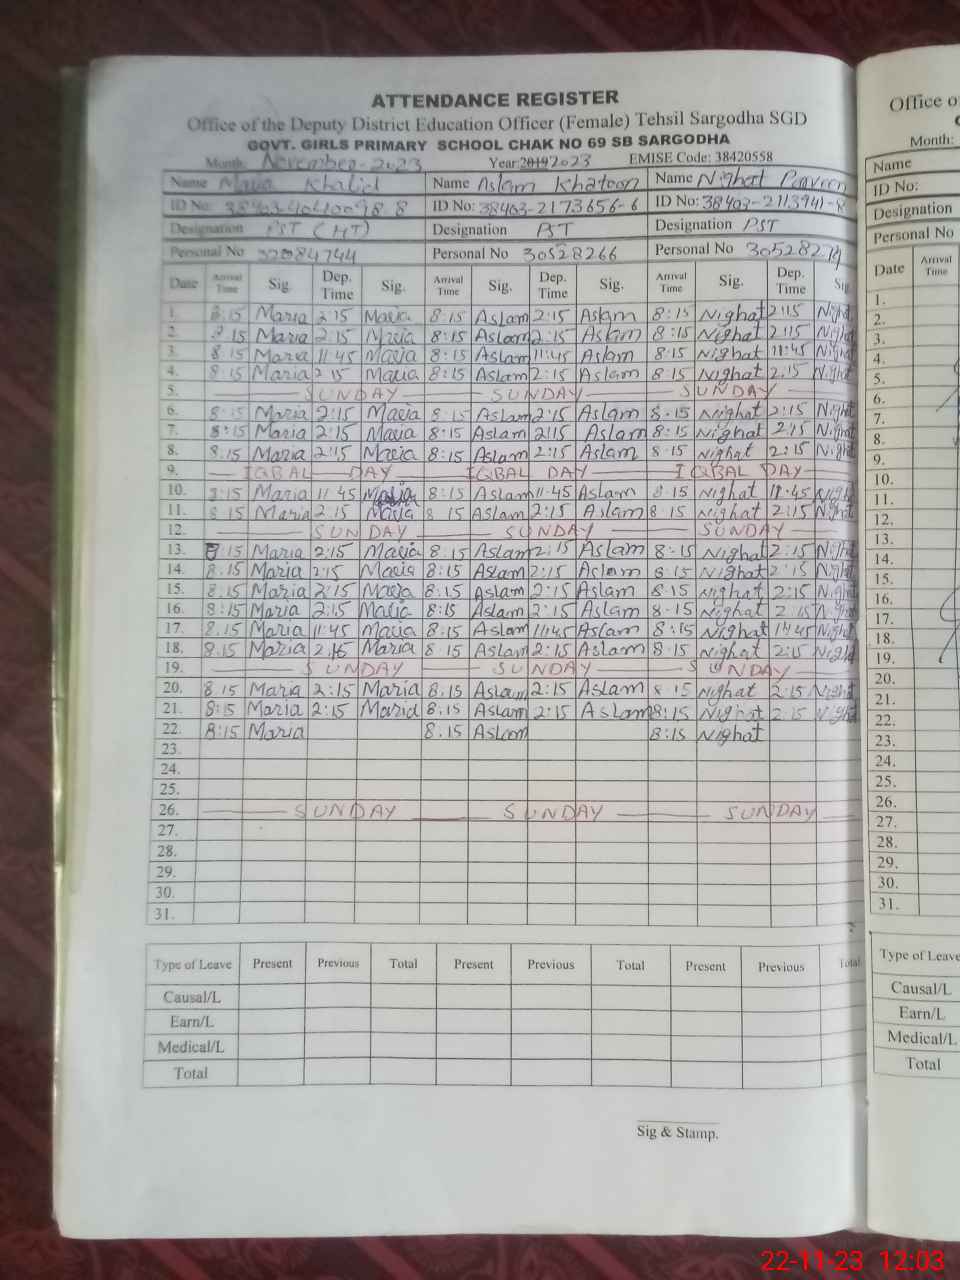 ATTENDANCE REGISTER
Office of the Deputy District Education Officer (Female) Tehsil Sargodha SGD
GOVT. GIRLS PRIMARY SCHOOL CHAK NO 69 SB SARGODHA
Month: November-2023 Year:2019 2023 EMISE Code: 38420558
Name Maria Khalid Name Aslam Khatoon Name Nighat Parveen
ID No: ID No: 38403-2173656-6 ID No: 38403-2113941-8
Designation PST (HT) Designation PST Designation PST
Personal No 32084744 Personal No 30528266 Personal No 30528279
Date Arrival Time Sig. Dep. Time Sig. Arrival Time Sig. Dep. Time Sig. Arrival Time Sig. Dep. Time Sig.
1. 8:15 Maria 2:15 Maria 8:15 Aslam 2:15 Aslam 8:15 Nighat 2:15 Nighat
2. 8.15 Maria 2:15 Maria 8:15 Aslam 2:15 Aslam 8:15 Nighat 2:15 Nighat
3. 8.15 Maria 11:45 Maria 8:15 Aslam 11:45 Aslam 8:15 Nighat 11:45 Nighat
4. 8.15 Maria 2 15 Maria 8:15 Aslam 2:15 Aslam 8.15 Nighat 2.15 Nighat
5. SUNDAY SUNDAY SUNDAY
6. 8:15 Maria 2:15 Maria 8.15 Aslam 2:15 Aslam 8.15 Nighat 2:15 Nighat
7. 8:15 Maria 2:15 Maria 8:15 Aslam 2:15 Aslam 8:15 Nighat 2:15 Nighat
8. 8.15 Maria 2:15 Maria 8:15 Aslam 2:15 Aslam 8.15 Nighat 2:15 Nighat
9. IQBAL DAY IQBAL DAY IQBAL DAY
10. 8:15 Maria 11:45 Maria 8:15 Aslam 11:45 Aslam 8.15 Nighat 11:45 Nighat
11. 8 15 Maria 2:15 Maria 8 15 Aslam 2:15 Aslam 8 15 Nighat 2:15 Nighat
12. SUNDAY SUNDAY SUNDAY
13. 8.15 Maria 2:15 Maria 8.15 Aslam 2:15 Aslam 8:15 Nighat 2:15 Nighat
14. 8.15 Maria 2:15 Maria 8:15 Aslam 2:15 Aslam 8:15 Nighat 2:15 Nighat
15. 8.15 Maria 2:15 Maria 8.15 Aslam 2:15 Aslam 8.15 Nighat 2:15 Nighat
16. 8:15 Maria 2:15 Maria 8:15 Aslam 2:15 Aslam 8.15 Nighat 2:15 Nighat
17. 8.15 Maria 11:45 Maria 8:15 Aslam 11:45 Aslam 8:15 Nighat 11:45 Nighat
18. 8.15 Maria 2.15 Maria 8.15 Aslam 2:15 Aslam 8.15 Nighat 2:15 Nighat
19. SUNDAY SUNDAY SUNDAY
20. 8.15 Maria 2:15 Maria 8.15 Aslam 2:15 Aslam 8.15 Nighat 2:15 Nighat
21. 8:15 Maria 2:15 Maria 8.15 Aslam 2:15 Aslam 8:15 Nighat 2.15 Nighat
22. 8:15 Maria 8.15 Aslam 8:15 Nighat
23.
24.
25.
26. SUNDAY SUNDAY SUNDAY
27.
28.
29.
30.
31.
Type of Leave Present Previous Total Present Previous Total Present Previous Total
Causal/L
Earn/L
Medical/L
Total
Sig & Stamp.
Office o
Month:
Name
ID No:
Designation
Personal No
Date Arrival Time
1.
2.
3.
4.
5.
6.
7.
8.
9.
10.
11.
12.
13.
14.
15.
16.
17.
18.
19.
20.
21.
22.
23.
24.
25.
26.
27.
28.
29.
30.
31.
Type of Leave
Causal/L
Earn/L
Medical/L
Total
22-11-23 12:03